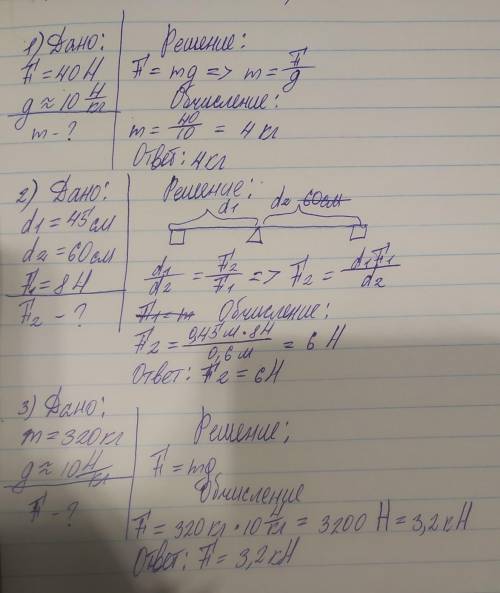 1) Дано:
F = 40 Н
g ≈ 10 Н/кг
m - ?
Решение:
F = mg => m = F/g
Обчисление:
m = 40/10 = 4 кг
Ответ: 4 кг
2) Дано:
d1 = 45 см
d2 = 60 см
F1 = 8 Н
F2 - ?
Решение:
d1 d2 60 см
d1/d2 = F2/F1 => F2 = d1F1/d2
F1 = m Обчисление:
F2 = 0,45 м · 8 Н/0,6 м = 6 Н
Ответ: F2 = 6 Н
3) Дано:
m = 320 кг
g ≈ 10 Н/кг
F - ?
Решение:
F = mg
Обчисление
F = 320 кг · 10 Н/кг = 3200 Н = 3,2 кН
Ответ: F = 3,2 кН